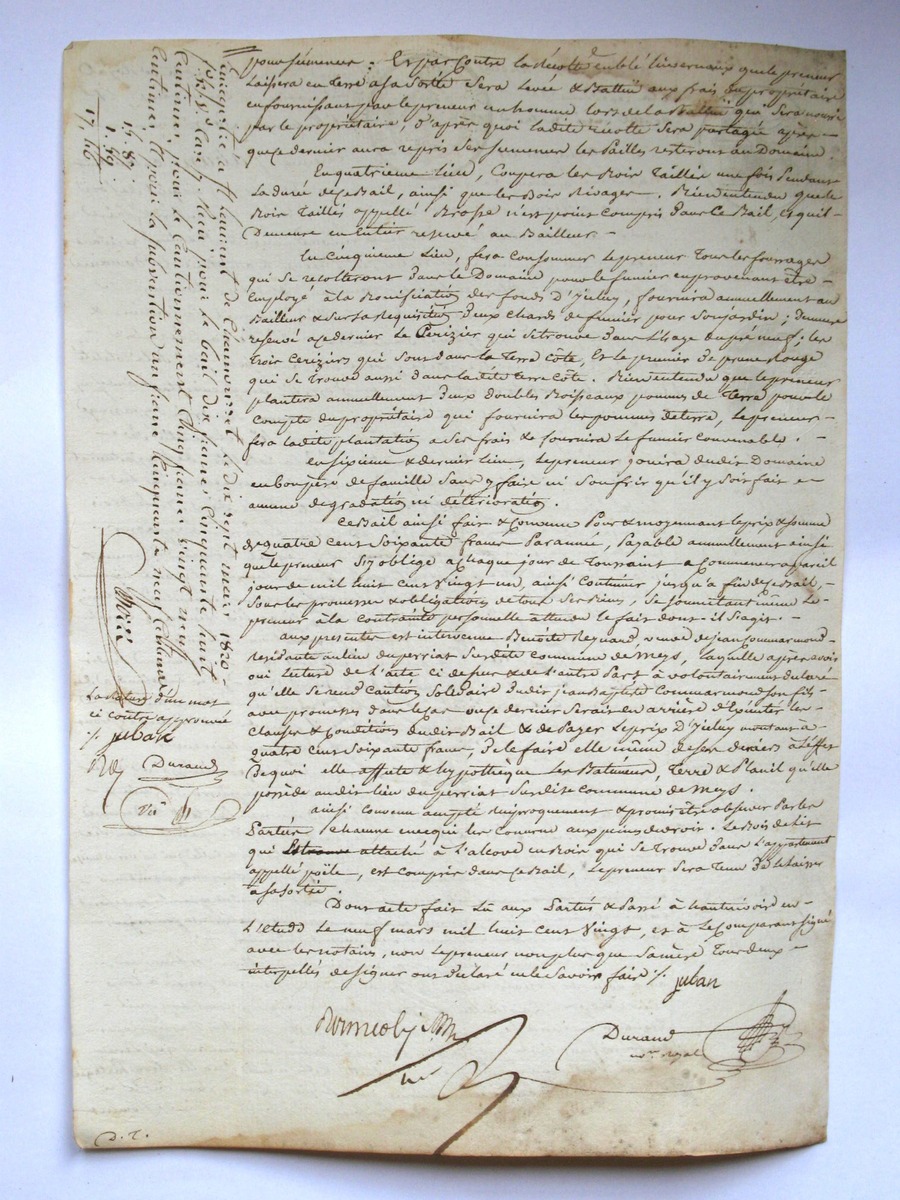 pour semences : Et par Contre la récolte en blé hivernaux que le preneur
Laissera en Terre à sa Sortie Sera Levée & Battue aux frais du propriétaire
en fournissant par le preneur un homme lors de la Battue qui Sera nourri
par le propriétaire, d'après quoi ladite récolte Sera partagée après
que ce dernier aura repris Ses Semences les Pailles resteront au Domaine.
En quatrieme Lieu, Coupera les Bois Taillée une fois Pendant
La durée de ce Bail, ainsi que les Bois Rivages. Bien entendu que le
Bois Taillis appellé Brosse n'est point Compris dans Ce Bail, et qu'il
Demeure en Entier reservé au Bailleur.
En Cinqieme Lieu, fera Consommer Le preneur Tous les fourrages
qui Se récolteront dans le Domaine pour le fumier en provenant être
Employé à la Bonification des fonds d'Iceluy, fournira annuellement au
Bailleur & sur Sa Requisition deux Chards de fumier pour Son jardin ; demeure
reservé a ce dernier Le Cerizier qui Se trouve dans l'hage du pré neuf ; les
Trois Cerizers qui Sont dans la Terre Côte, Et le prunier de prune Rouge
qui Se Trouve aussi dans ladite terre Côte. Bien entendu que le preneur
plantera annuellement deux doubles Boisseaux pommes de Terre pour le
Compte du propriétaire qui fournira les pommes de terre, Le preneur
fera ladite plantation a Ses frais & fournira Le fumier Convenable.
En Sixieme & dernier Lieu, Le preneur jouira dudit Domaine
en Bon père de famille Sans y faire ni Souffrir qu'il y Soit fait
aucune dégradation ni détérioration.
Ce Bail ainsi fait & Convenu Pour & moyennant le prix & Somme
de quatre Cent Soixante francs Par année, Payable annuellement ainsi
que le preneur S'y oblige a Chaque jour de Toussaint a Commencer a pareil
jour de mil huit Cent Vingt un, ainsi Continuer jusqu'a fin de Ce Bail
Sous les promesses & obligations de tous Ses Biens, Se Soumettant même Le
preneur à la Contrainte personnelle attendu le fait dont il S'agit.
aux presentes est intervenue Benoîte Reynard veuve de Jean Commarmond
residante au lieu du perriat Susdite Commune de Meys, Laquelle après avoir
oui Lecture de l'acte ci dessus & de l'autre Part à volontairement déclaré
qu'elle Se rend Caution Solidaire dudit Jean Baptiste Commarmond Son fils
avec promesses dans le Cas ou Ce dernier Serait en arrière d'Executer les
Clauses & Conditions dudit Bail & de Payer Le prix d'Iceluy montant à
quatre Cent Soixante francs, de le faire elle même de Ses deniers à L'effet
de quoi elle affecte & hypothèque Les Batimens, Terre & qu'elle
possède audit lieu du perriat Susdite Commune de Meys.
ainsi Convenu accepté réciproquement & promis être observé Par les
Parties Chacune en ce qui les Concerne aux peines de droit. Le Bois de Lit
qui attaché à L'alcove en Bois qui Se Trouve dans L'appartement
appellé poële, est Compris dans Ce Bail, Le preneur Sera Tenu de le laisser
à Sa Sortie.
Dont acte fait Lu aux Parties & Passé à en
L'étude Le neuf mars mil huit Cent Vingt, et à Le Comparant Signé
avec les notaires, non Le preneur non plus que Sa mère Tous deux
interpellés de Signer ont déclaré ne le Savoir faire ./. juban
Durand
nore royal
Enregistré à St Laurent de Chamousset le dix sept mars 1820
fo Reçu pour le bail dix francs Cinquante huit
Centimes, pour le Cautionnement Cinq francs vingt neuf
Centimes, & pour la subvention un franc Cinquante neuf Centimes
15. 87
1. 59
17. 46
La Rature d'un mot
ci contre approuvée
./. juban
Durand
D. T.